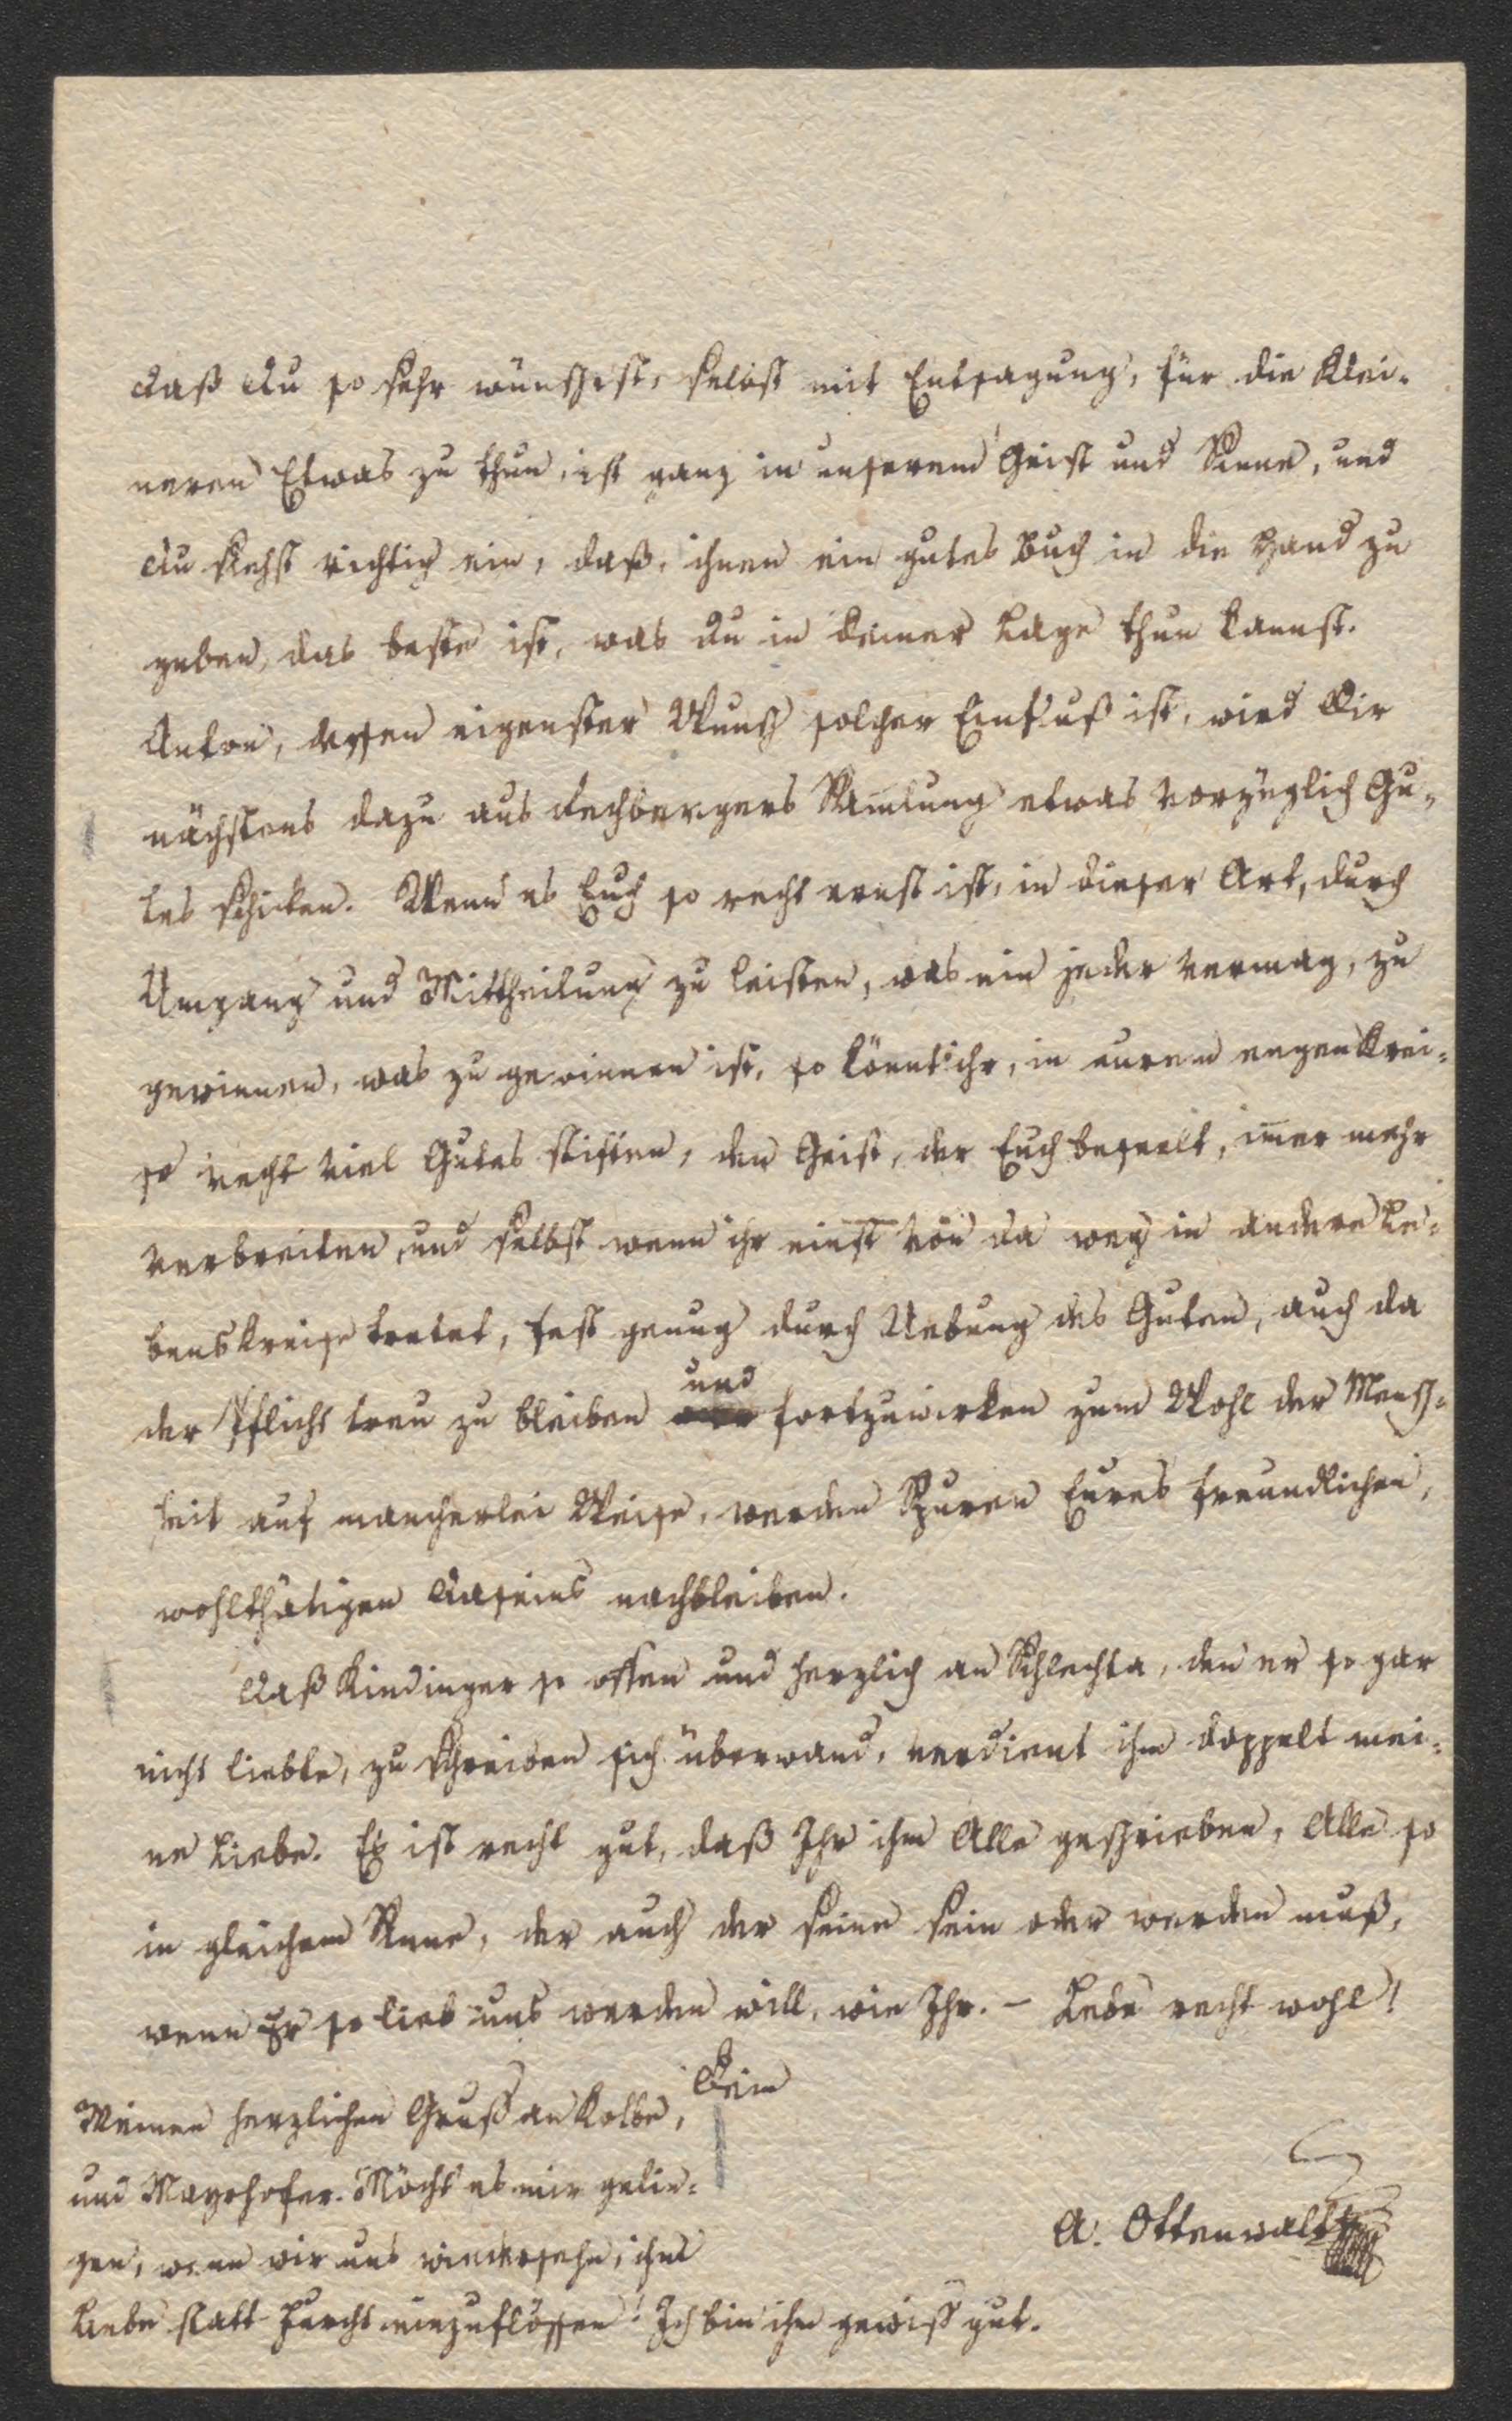 daß du so sehr wünschest, selbst mit Entsagung, für die Klei-
neren Etwas zu thun, ist ganz in unserem Geist und Sinne, und
du siehst richtig ein, daß, ihnen ein gutes Buch in die Hand zu
geben, das beste ist, was du in deiner Lage thun kannst.
Anton, dessen eigenster Wunsch solcher Einfluß ist, wird Dir
nächstens dazu aus Rechbergers Sam̄lung etwas vorzüglich Gu-
tes schicken. Wenn es Euch so recht ernst ist, in dieser Art, durch
Umgang und Mittheilung zu leisten, was ein jeder vermag, zu
gewinnen, was zu gewinnen ist, so könnt ihr, in eurem engen Krei-
se recht viel Gutes stiften, den Geist, der Euch beseelt, im̄er mehr
verbreiten, und selbst wenn ihr einst von da weg in andere Le-
benskreise tretet, fest genug durch Uebung des Guten, auch da
der Pflicht treu zu bleiben und fortzuwirken zum Wohl der Mensch-
heit auf mancherlei Weise, werden Spuren Eures freundlichen,
wohlthätigen Daseins nachbleiben.
Daß Kindinger so offen und herzlich an Schlechta, den er so gar
nicht liebte, zu schreiben sich überwand, verdient ihm doppelt mei-
ne Liebe. Es ist recht gut, daß Ihr ihm Alle geschrieben, Alle so
in gleichem Sinne, der auch der seine sein oder werden muß,
wenn Er so lieb uns werden will, wie Ihr. – Lebe recht wohl!
Dein
A. Ottenwalt
Meinen herzlichen Gruß an Kolbe,
und Mayrhofer. Möcht es mir gelin-
gen, wenn wir uns wiedersehn, ihm
Liebe statt Furcht einzuflößen! Ich bin ihm gewiß gut.